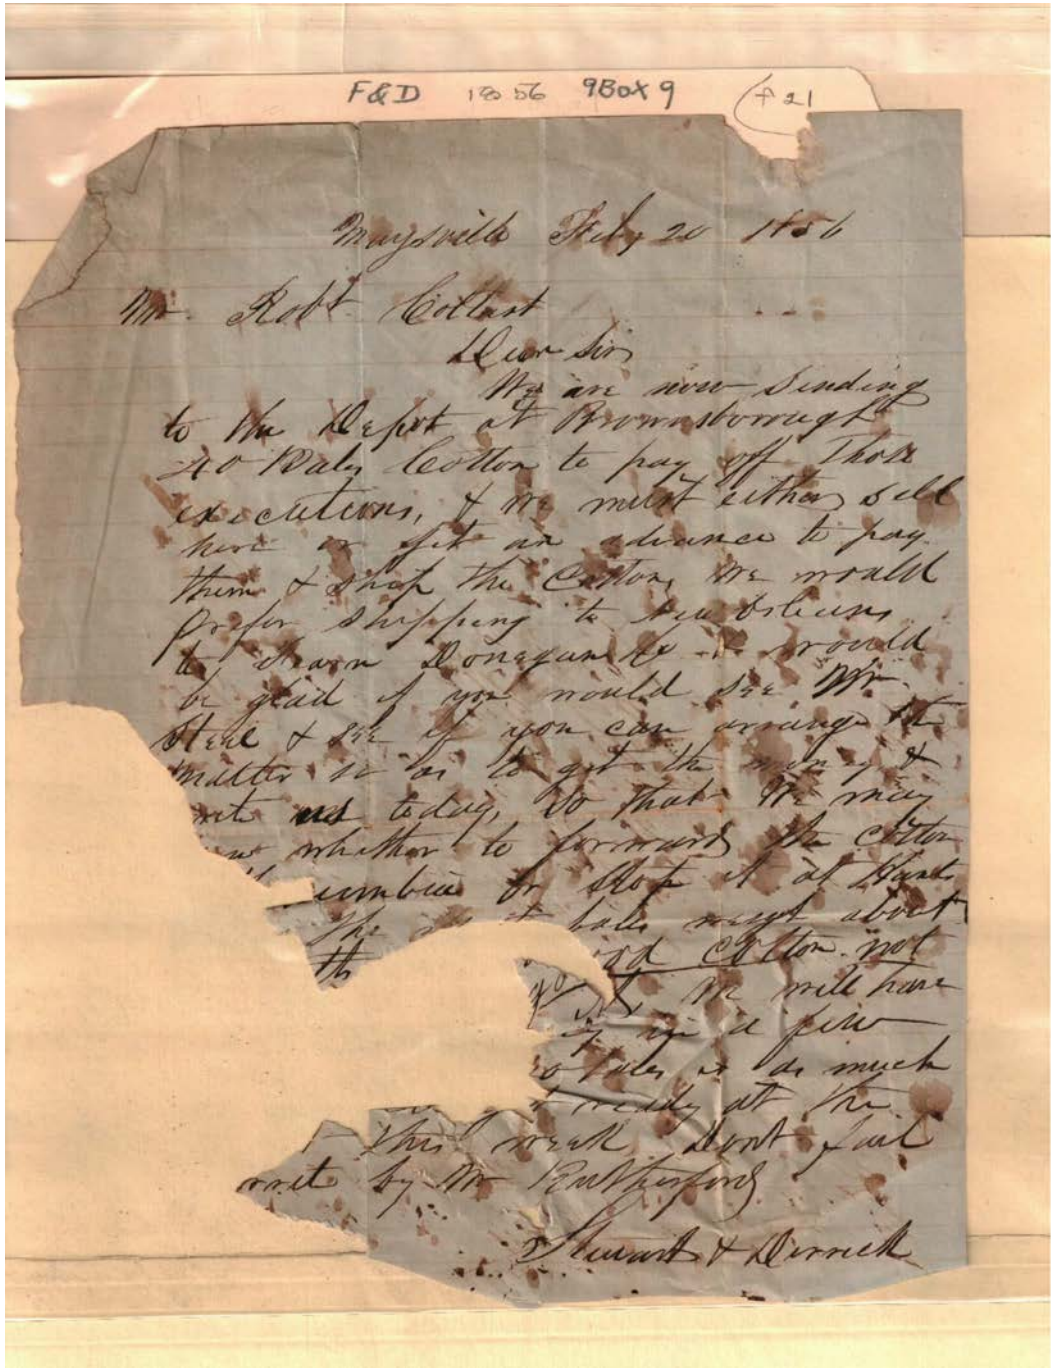 F&D 1856 9Box9 (f 21
Maysville Feby 20 1856
Mr. Robt. Coltart
Dear Sir
We are now sending
to the Depot at Brownsborough
40 Bales Cotton to pay off Those
executions, & we must either sell
here or get an advance to pay
them & ship the Cotton, we would
prefer shipping to New Orleans
to Donegan & would
be glad if you would see Mr.
Steel & see if you can arrange the
matter so as to get the money &
write us today, so that we may
whether to forward the Cotton
umbia or stop it at Hunts
The bales weigh about
Cotton not
We will have
in a few
bales as much
ready at the
this week Dont fail
write by Mr Rutherford
Stewart & Derrick